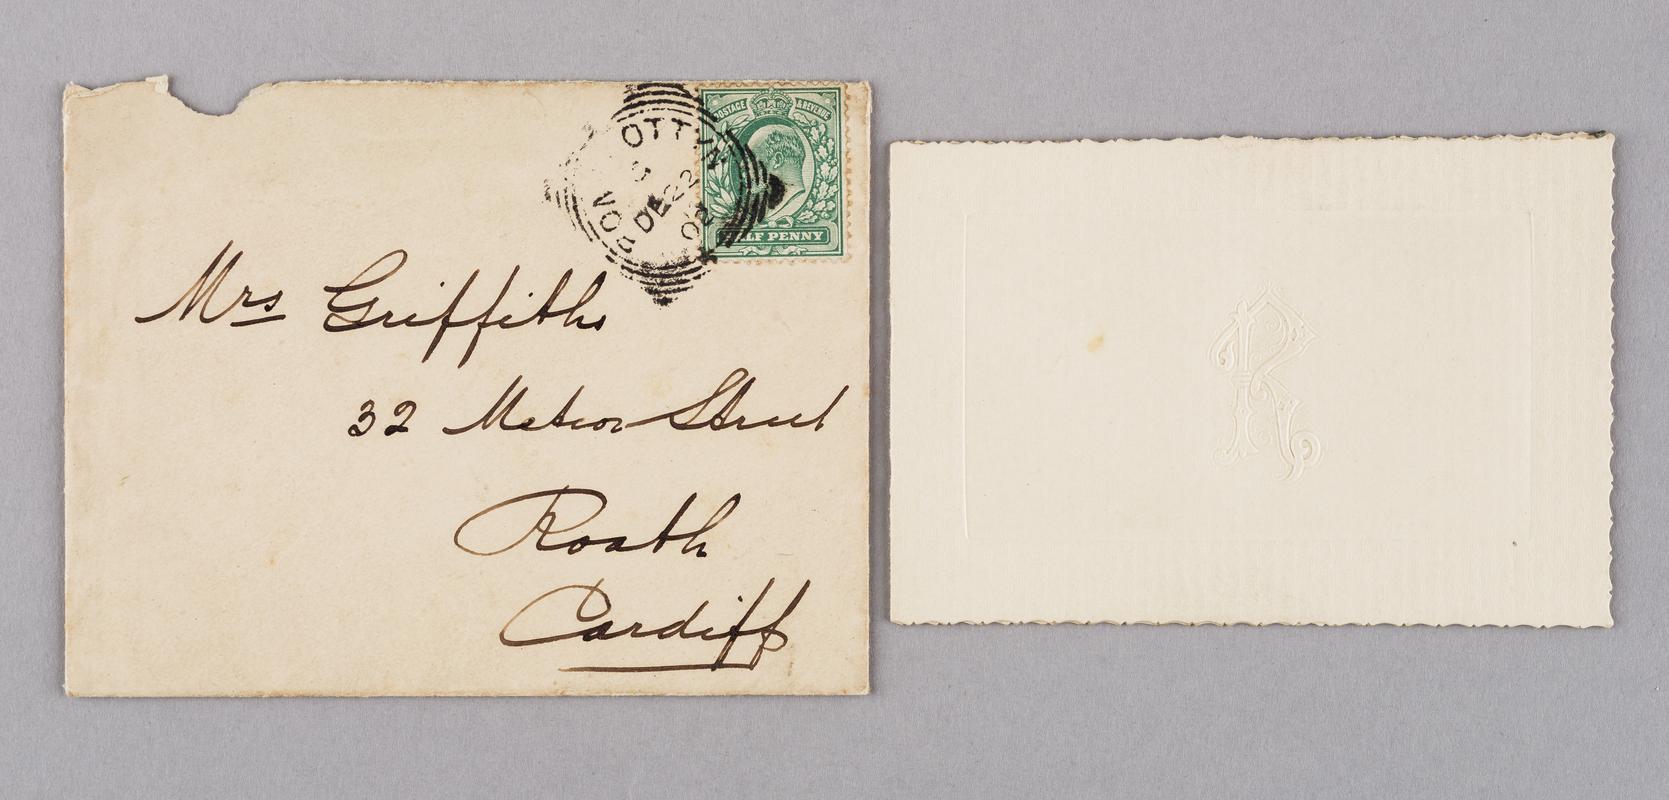 POSTAGE & REVENUE
HALF PENNY
DE 22
02
Mrs Griffiths
32 Meteor Street
Roath
Cardiff
R